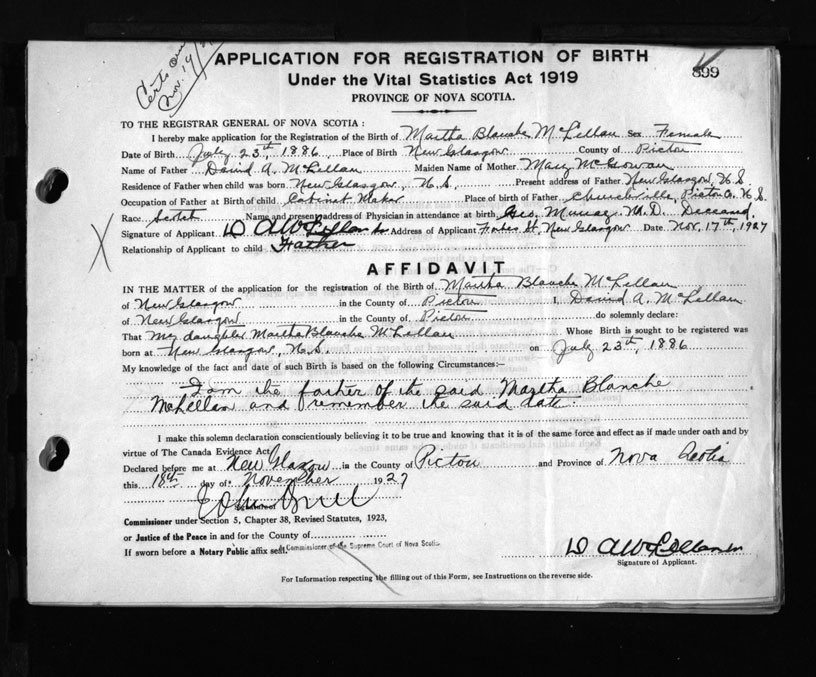 Nov. 19/
APPLICATION FOR REGISTRATION OF BIRTH
899
Under the Vital Statistics Act 1919
PROVINCE OF NOVA SCOTIA.
TO THE REGISTRAR GENERAL OF NOVA SCOTIA :
I hereby make application for the Registration of the Birth of Martha Blanche McLellan Sex Female
Date of Birth July 23rd, 1886 Place of Birth New Glasgow County of Pictou
Name of Father David A. McLellan Maiden Name of Mother Mary McGowan
Residence of Father when child was born New Glasgow, N.S. Present address of Father New Glasgow, N.S
Occupation of Father at Birth of child Cabinet Maker Place of birth of Father Churchville, Pictou Co. N.S
Race Scotch Name and present address of Physician in attendance at birth Geo. Murray M.D. Deceased
Signature of Applicant D A McLellan Address of Applicant Forbes St, New Glasgow Date Nov. 17th, 1927
Relationship of Applicant to child Father
AFFIDAVIT
IN THE MATTER of the application for the registration of the Birth of Martha Blanche McLellan
of New Glasgow in the County of Pictou I, David A. McLellan
of New Glasgow in the County of Pictou do solemnly declare:
That my daughter Martha Blanche McLellan Whose Birth is sought to be registered was
born at New Glasgow, N.S. on July 23rd, 1886
My knowledge of the fact and date of such Birth is based on the following Circumstances:—
I am the father of the said Martha Blanche
McLellan and remember the said date.
I make this solemn declaration conscientiously believing it to be true and knowing that it is of the same force and effect as if made under oath and by
virtue of The Canada Evidence Act.
Declared before me at New Glasgow in the County of Pictou and Province of Nova Scotia
this 18th day of November 1927
Commissioner under Section 5, Chapter 38, Revised Statutes, 1923,
or Justice of the Peace in and for the County of
If sworn before a Notary Public affix seal. A Commissioner of the Supreme Court of Nova Scotia
D A McLellan
Signature of Applicant.
For Information respecting the filling out of this Form, see Instructions on the reverse side.